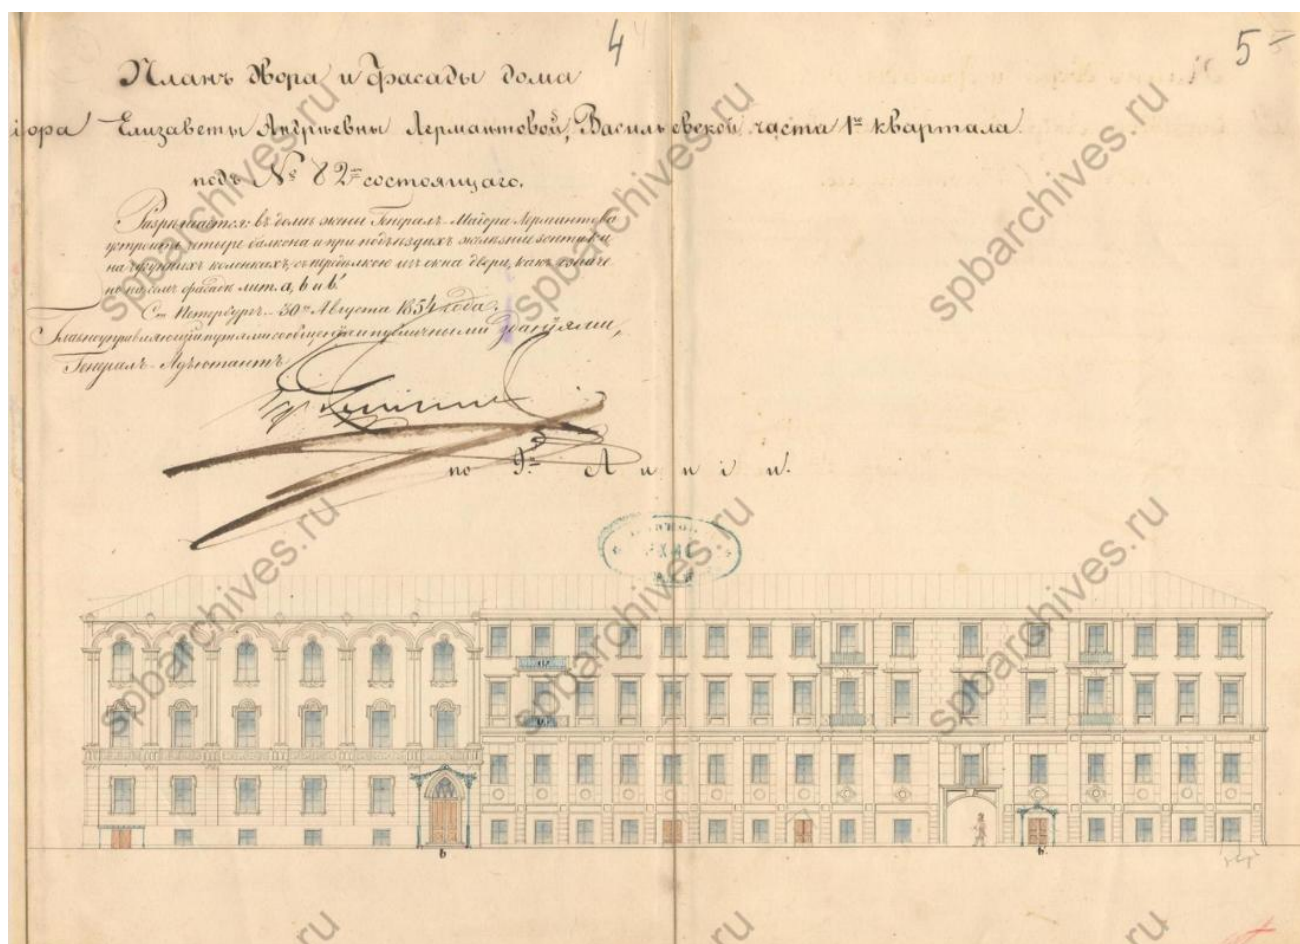 4
5
Планъ двора и фасады дома
іора Елизаветы Андреевны Лермантовой, Васильевской части 1го квартала
подъ № 82м состоящаго.
Разрѣшается: въ домѣ жены Генералъ-Маіора Лермантова
устроить четыре балкона и при подъѣздахъ желѣзные зонтики
на чугунныхъ колонкахъ, съ передѣлкою изъ окна двери, какъ означе
но на семъ фасадѣ лит. а, b и b.
Ст. Петербургъ. 30го Августа 1854 года.
Главноуправляющій путями сообщенія и публичными зданіями,
Генералъ-Адъютантъ
по 9й Линіи.
b
b
spbarchives.ru
spbarchives.ru
spbarchives.ru
spbarchives.ru
spbarchives.ru
spbarchives.ru